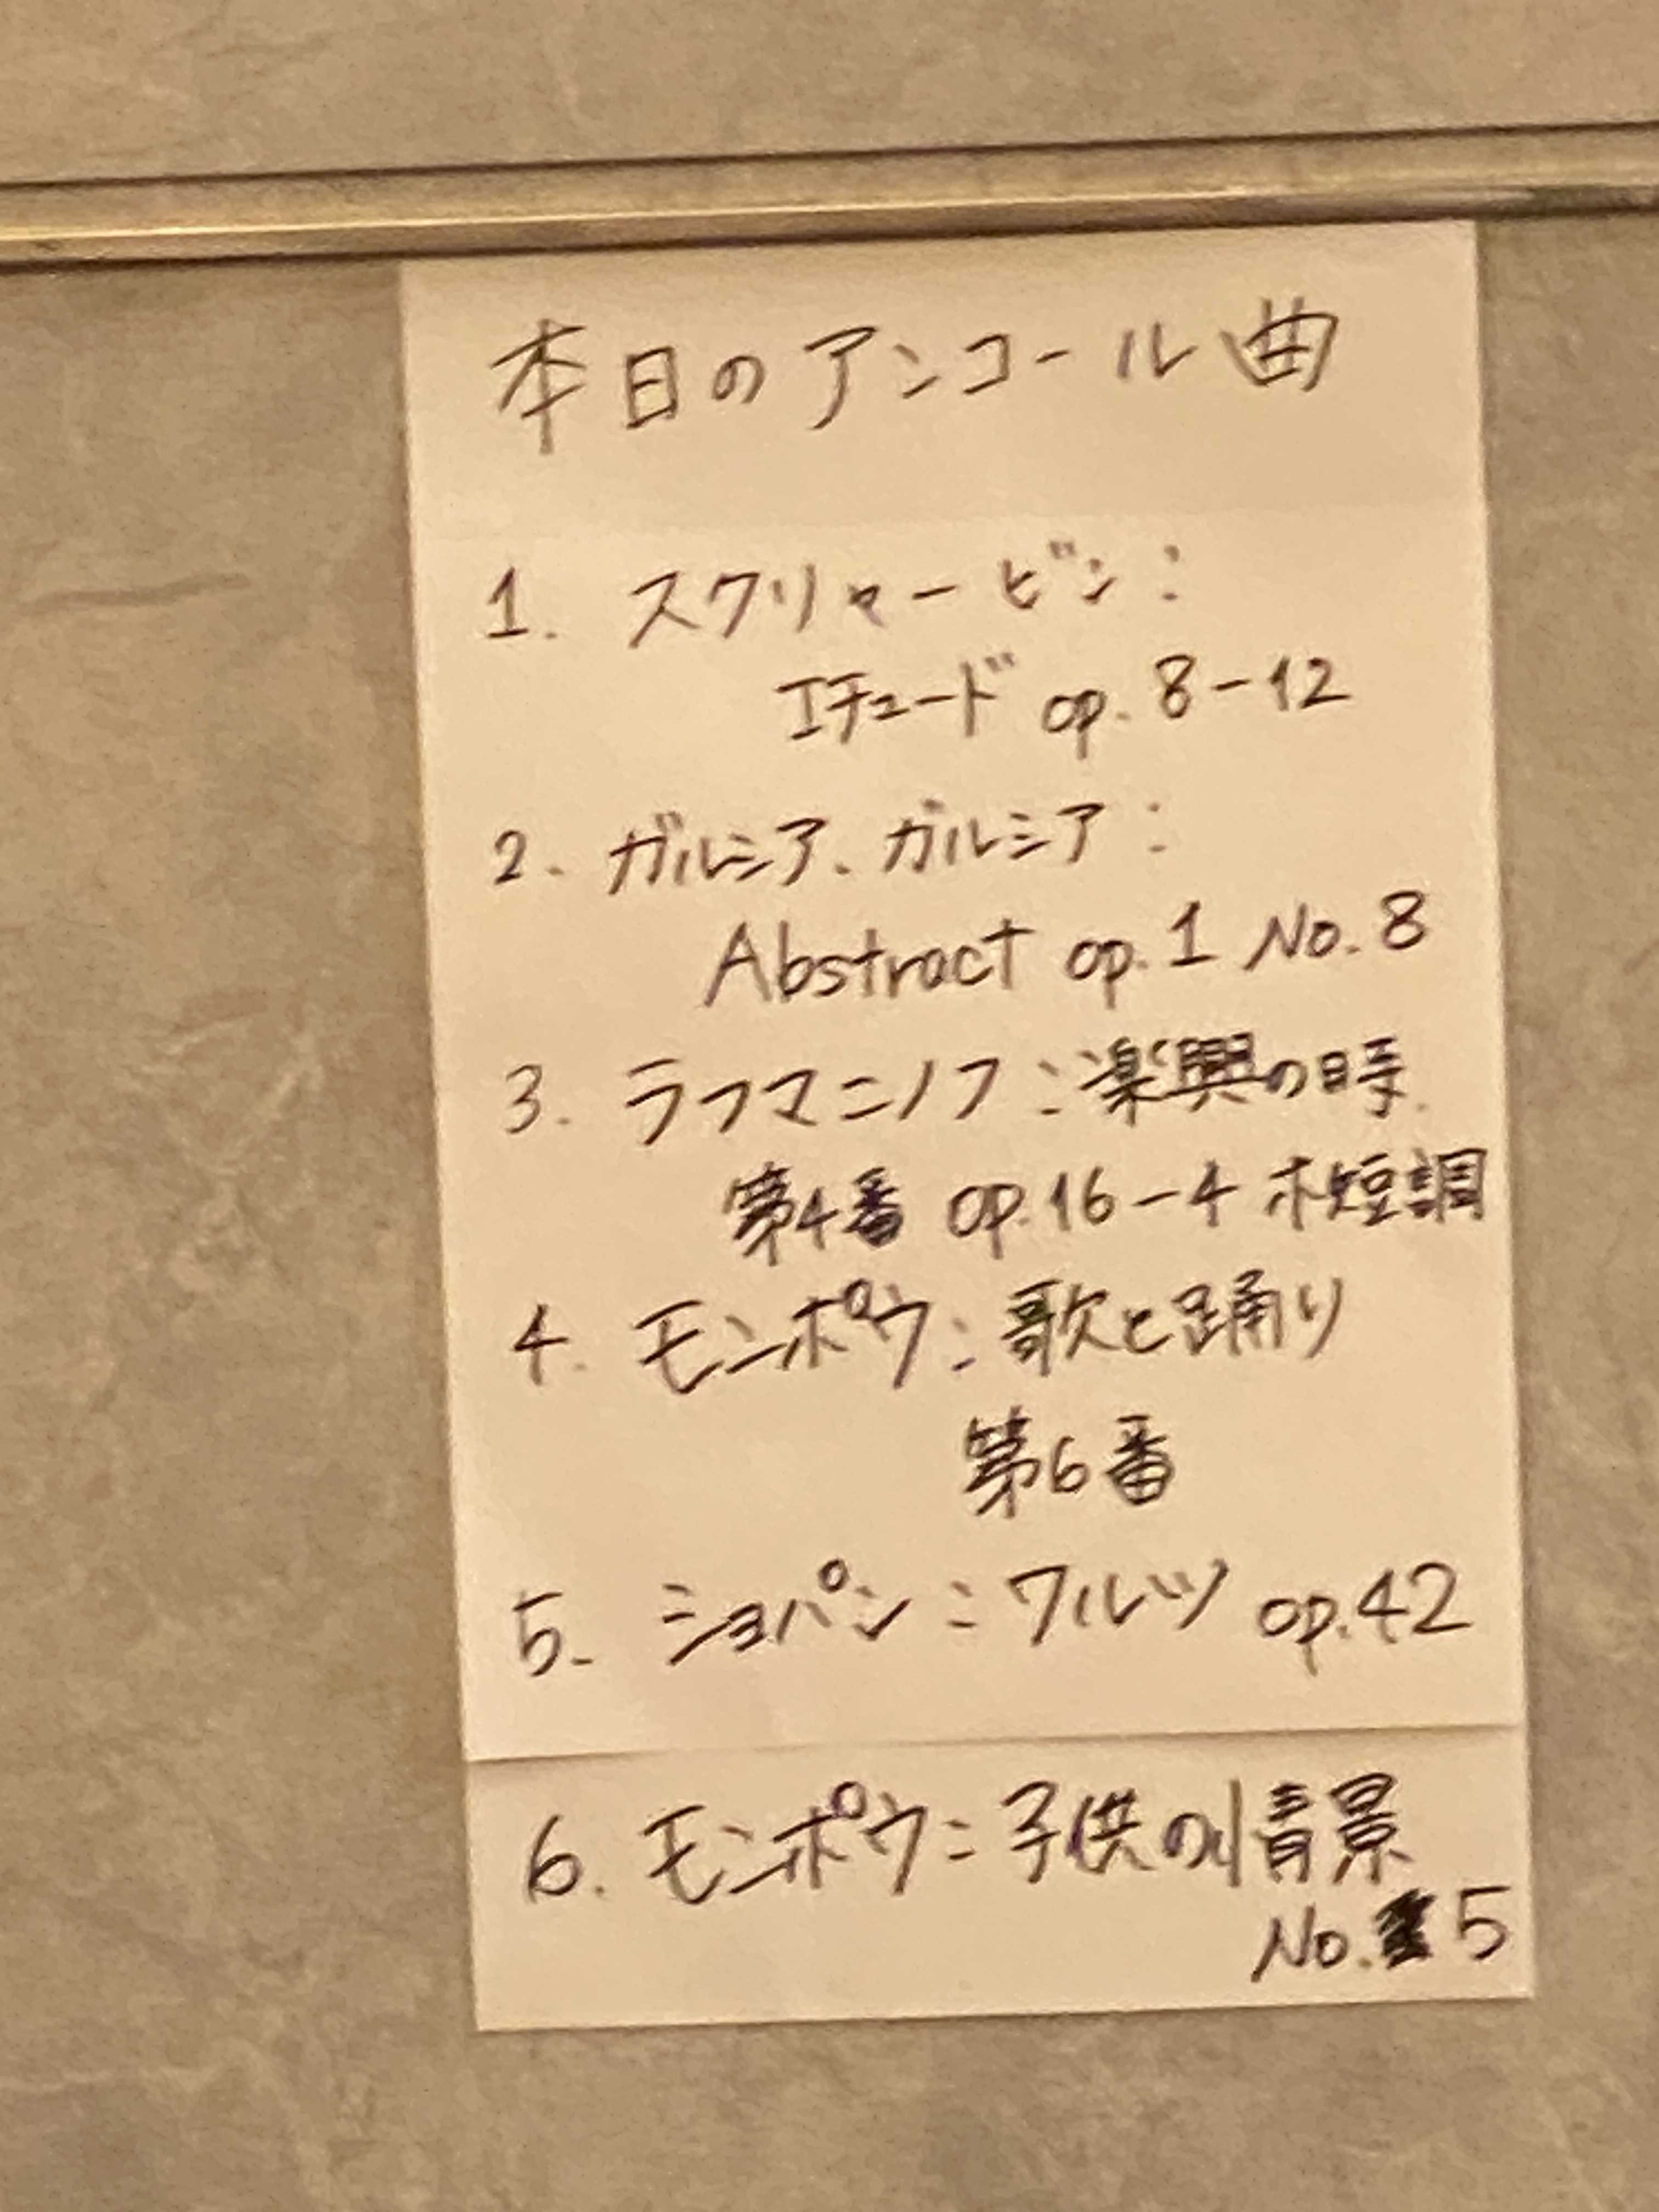 本日のアンコール曲
1. スクリャービン:
エチュード op. 8-12
2. ガルシア、ガルシア:
Abstract op. 1 No. 8
3. ラフマニノフ:楽興の時
第4番 op.16-4 ホ短調
4. モンポウ:歌と踊り
第6番
5. ショパン:ワルツ op.42
6. モンポウ:子供の情景
No. 5